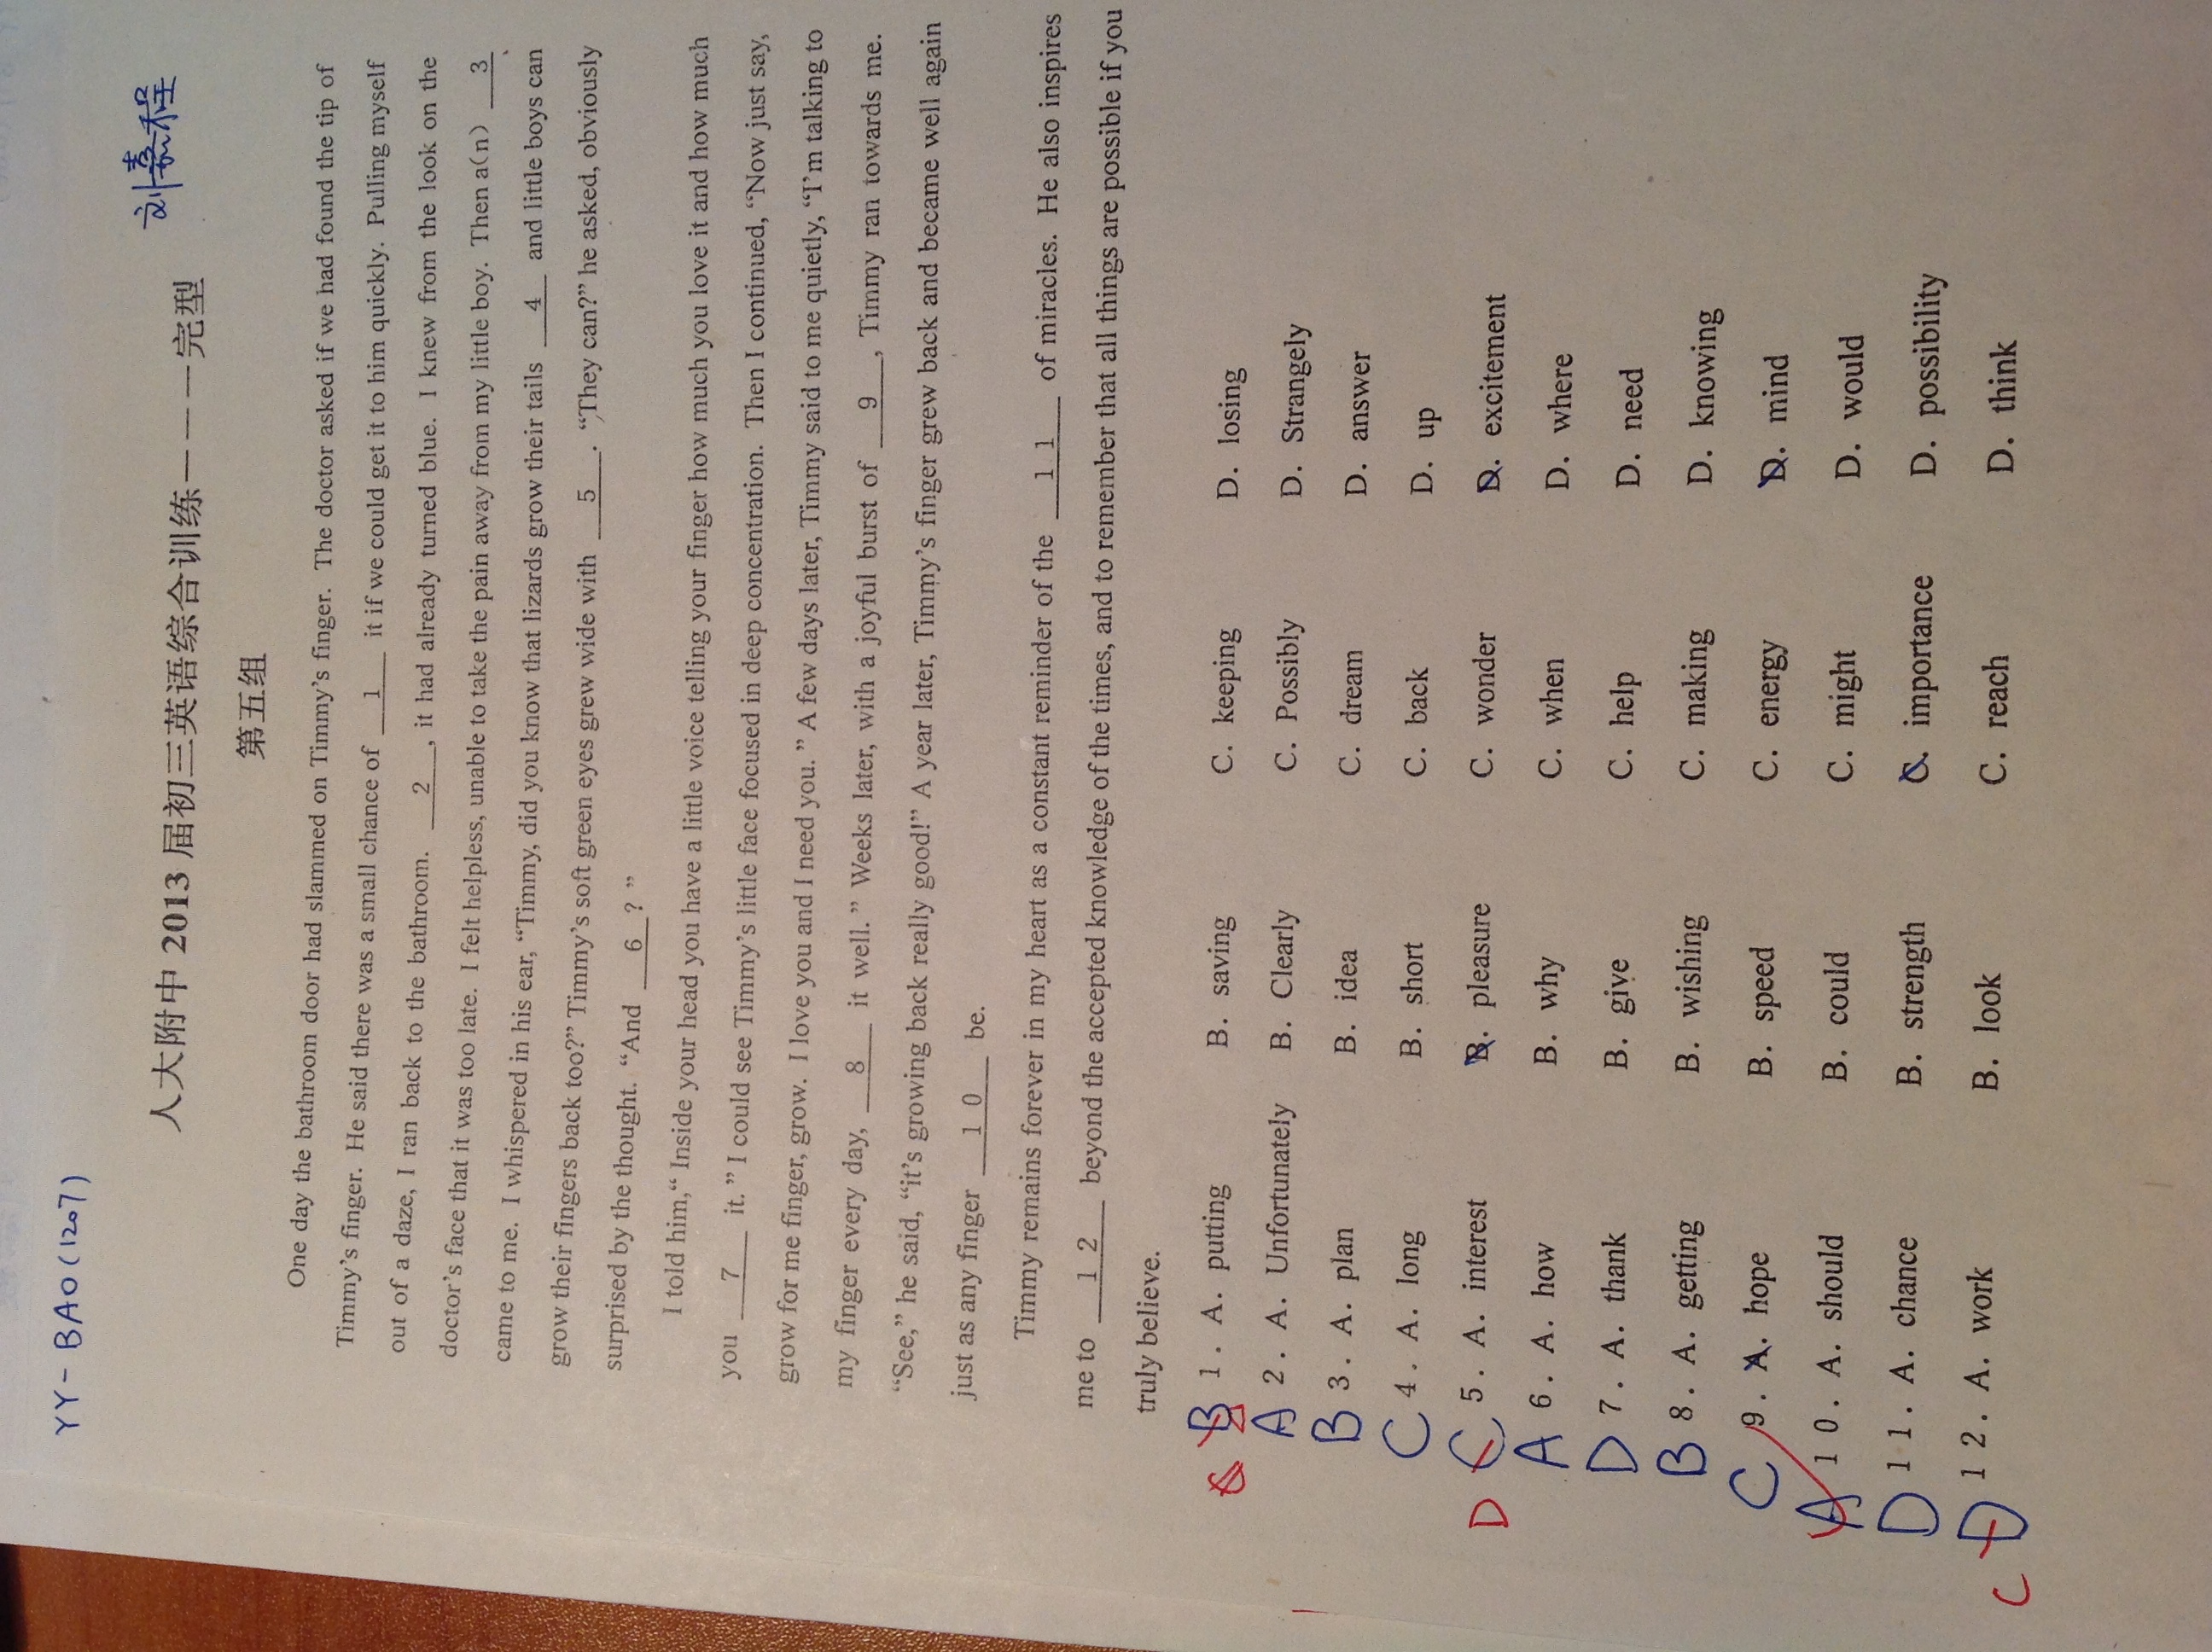 YY-BAO(1207)
刘嘉程
人大附中 2013 届初三英语综合训练———完型
第五组
One day the bathroom door had slammed on Timmy's finger. The doctor asked if we had found the tip of
Timmy's finger. He said there was a small chance of 1 it if we could get it to him quickly. Pulling myself
out of a daze, I ran back to the bathroom. 2 , it had already turned blue. I knew from the look on the
doctor's face that it was too late. I felt helpless, unable to take the pain away from my little boy. Then a(n) 3
came to me. I whispered in his ear, “Timmy, did you know that lizards grow their tails 4 and little boys can
grow their fingers back too?” Timmy's soft green eyes grew wide with 5 . “They can?” he asked, obviously
surprised by the thought. “And 6 ? ”
I told him,“ Inside your head you have a little voice telling your finger how much you love it and how much
you 7 it. ” I could see Timmy's little face focused in deep concentration. Then I continued, “Now just say,
grow for me finger, grow. I love you and I need you. ” A few days later, Timmy said to me quietly, “I'm talking to
my finger every day, 8 it well. ” Weeks later, with a joyful burst of 9 , Timmy ran towards me.
“See,” he said, “it's growing back really good!” A year later, Timmy's finger grew back and became well again
just as any finger 10 be.
Timmy remains forever in my heart as a constant reminder of the 11 of miracles. He also inspires
me to 12 beyond the accepted knowledge of the times, and to remember that all things are possible if you
truly believe.
B 1. A. putting B. saving C. keeping D. losing
A 2. A. Unfortunately B. Clearly C. Possibly D. Strangely
B 3. A. plan B. idea C. dream D. answer
C 4. A. long B. short C. back D. up
D C 5. A. interest B. pleasure C. wonder D. excitement
A 6. A. how B. why C. when D. where
D 7. A. thank B. give C. help D. need
B 8. A. getting B. wishing C. making D. knowing
C 9. A. hope B. speed C. energy D. mind
A 10. A. should B. could C. might D. would
D 11. A. chance B. strength C. importance D. possibility
C D 12. A. work B. look C. reach D. think